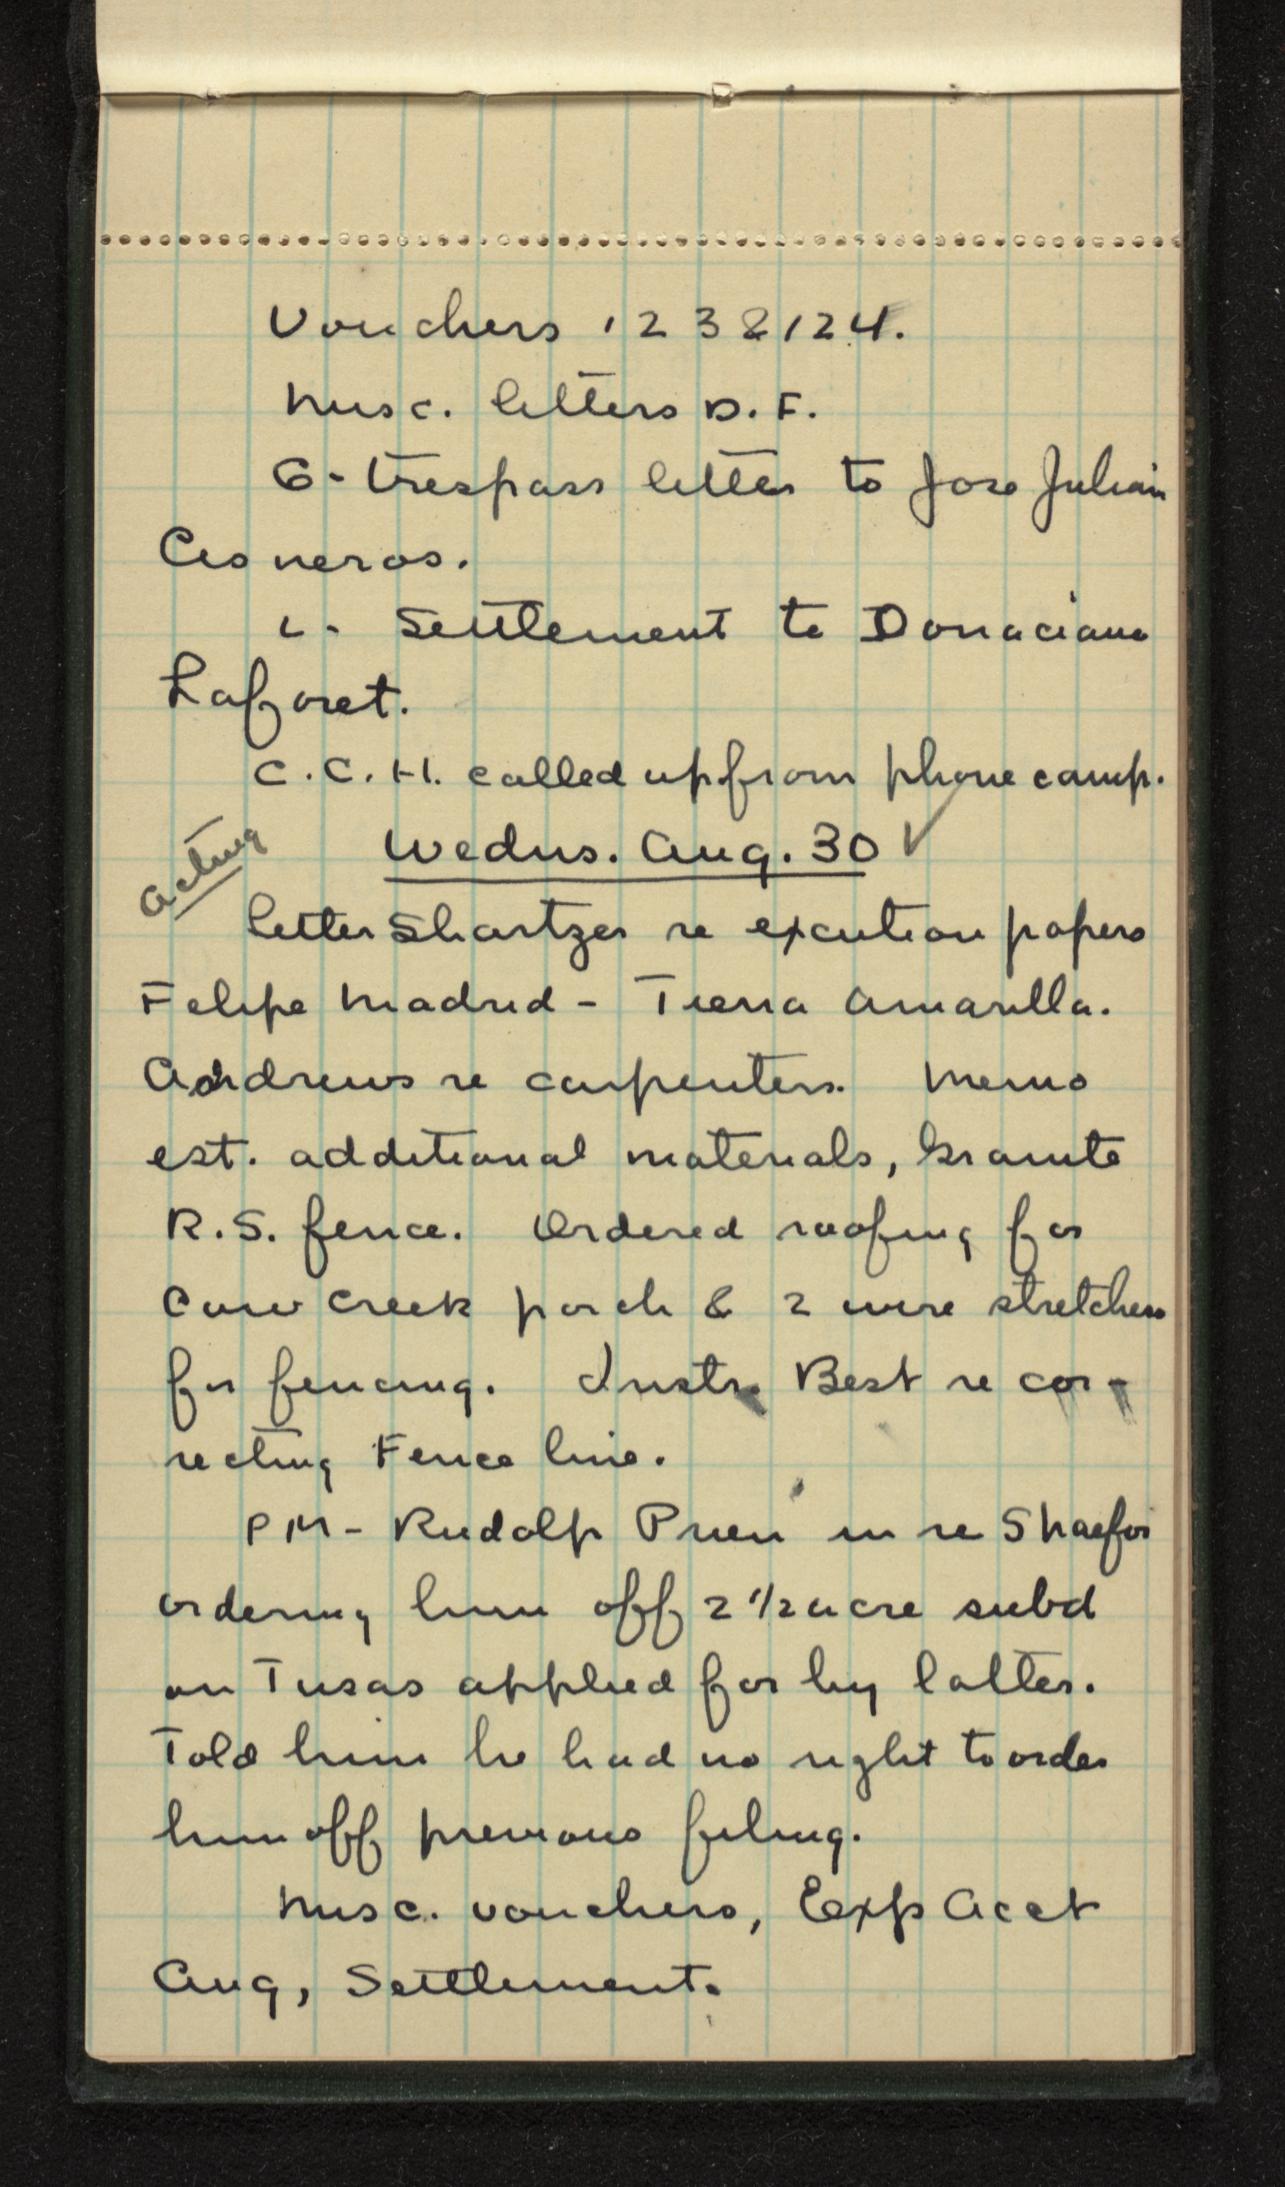 Vouchers 123 & 124.
Misc. letters D. F.
G- trespass letter to Jose Julian
Cisneros.
L- Settlement to Donaciano
Laforet.
C. C. H. called up from phone camp.
Acting
Wedns. Aug. 30 ✓
Letter Shartzer re excution papers
Felipe Madrid - Tierra Amarilla.
Andrews re carpenters. Memo
est. additional materials, Granite
R.S. fence. Ordered roofing for
Cow Creek porch & 2 wire stretchers
for fencing. Instr. Best re cor-
recting Fence line.
PM - Rudolf Pruen in re Shaefor
ordering him off 2 1/2 acre subd
on Tusas applied for by latter.
Told him he had no right to order
him off previous filing.
Misc. vouchers, Exp Acct
Aug, Settlement.